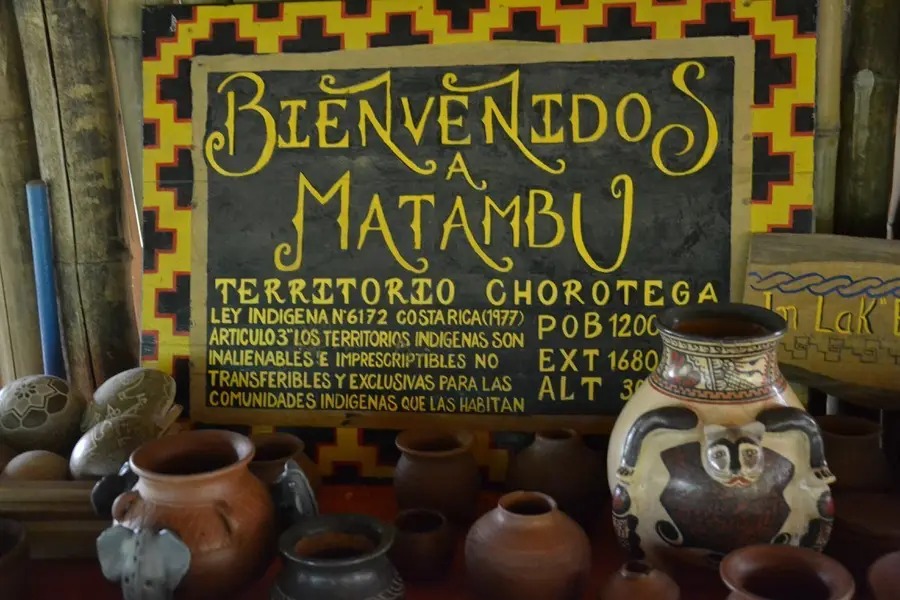 BIENVENIDOS
A
MATAMBU
TERRITORIO CHOROTEGA
LEY INDIGENA Nº6172 COSTA RICA (1977)
ARTICULO 3" LOS TERRITORIOS INDIGENAS SON
INALIENABLES E IMPRESCRIPTIBLES NO
TRANSFERIBLES Y EXCLUSIVAS PARA LAS
COMUNIDADES INDIGENAS QUE LAS HABITAN
POB 1200
EXT 1680
ALT
LaK